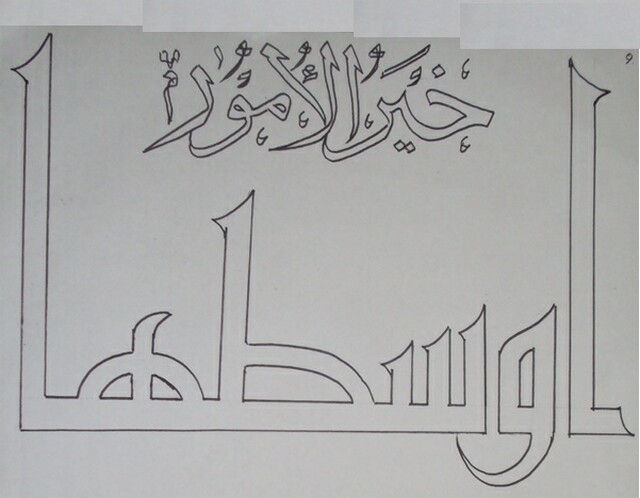 خَيْرُ الْأُمُورِ
اوسطها